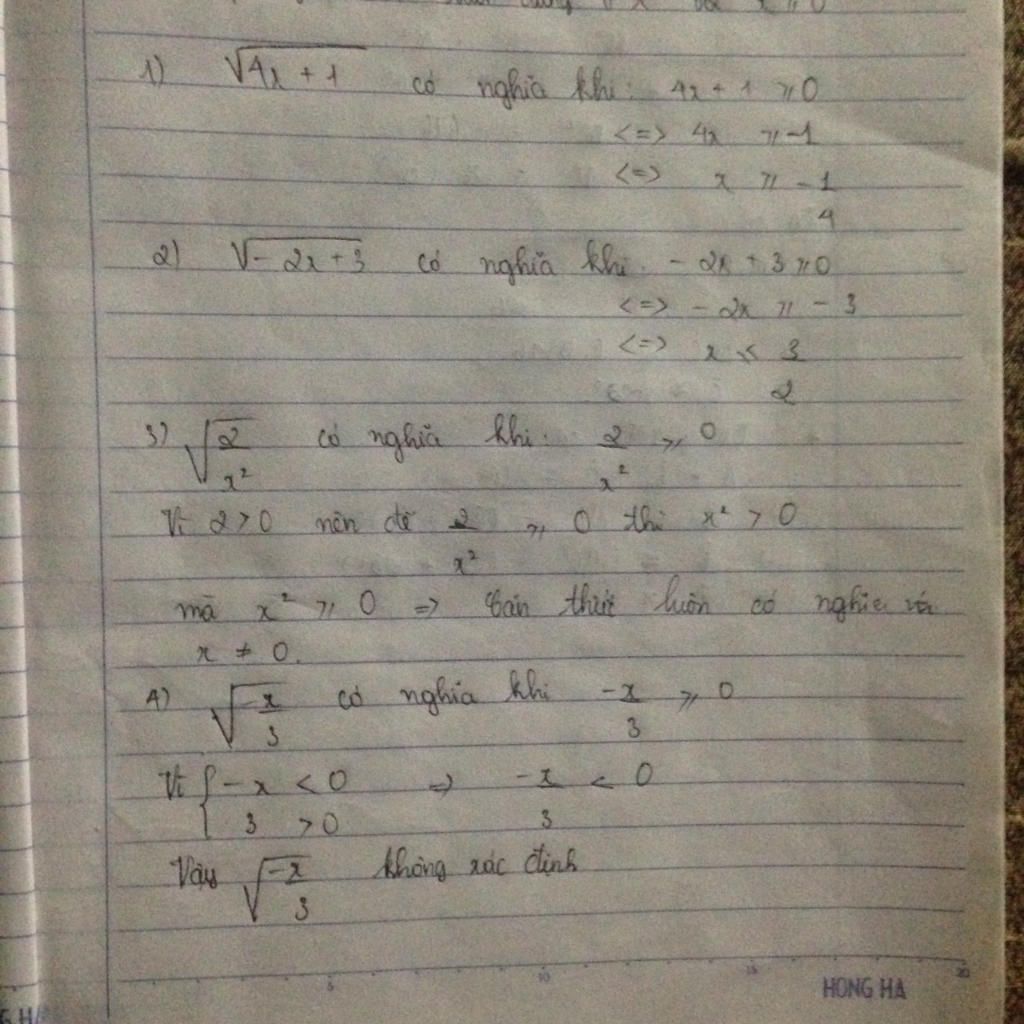 1) √4x + 1 có nghĩa khi: 4x + 1 ⩾ 0
<=> 4x ⩾ -1
<=> x ⩾ -1
4
2) √- 2x + 3 có nghĩa khi. - 2x + 3 ⩾ 0
<=> - 2x ⩾ - 3
<=> x ⩽ 3
2
3) √2/x² có nghĩa khi. 2/x² ⩾ 0
Vì 2 > 0 nên để 2/x² ⩾ 0 thì x² > 0
mà x² ⩾ 0 => căn thức luôn có nghĩa với
x ≠ 0.
4) √-x/3 có nghĩa khi -x/3 ⩾ 0
Vì { -x < 0 => -x/3 < 0
3 > 0
Vậy √-x/3 không xác định
5 10 15 20
HONG HA